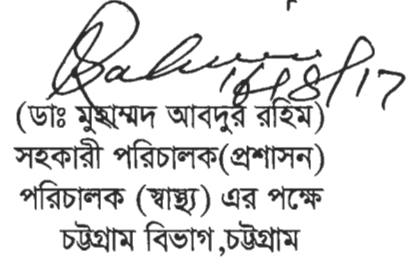 16/8/17
(ডাঃ মুহাম্মদ আবদুর রহিম)
সহকারী পরিচালক(প্রশাসন)
পরিচালক (স্বাস্থ্য) এর পক্ষে
চট্টগ্রাম বিভাগ,চট্টগ্রাম